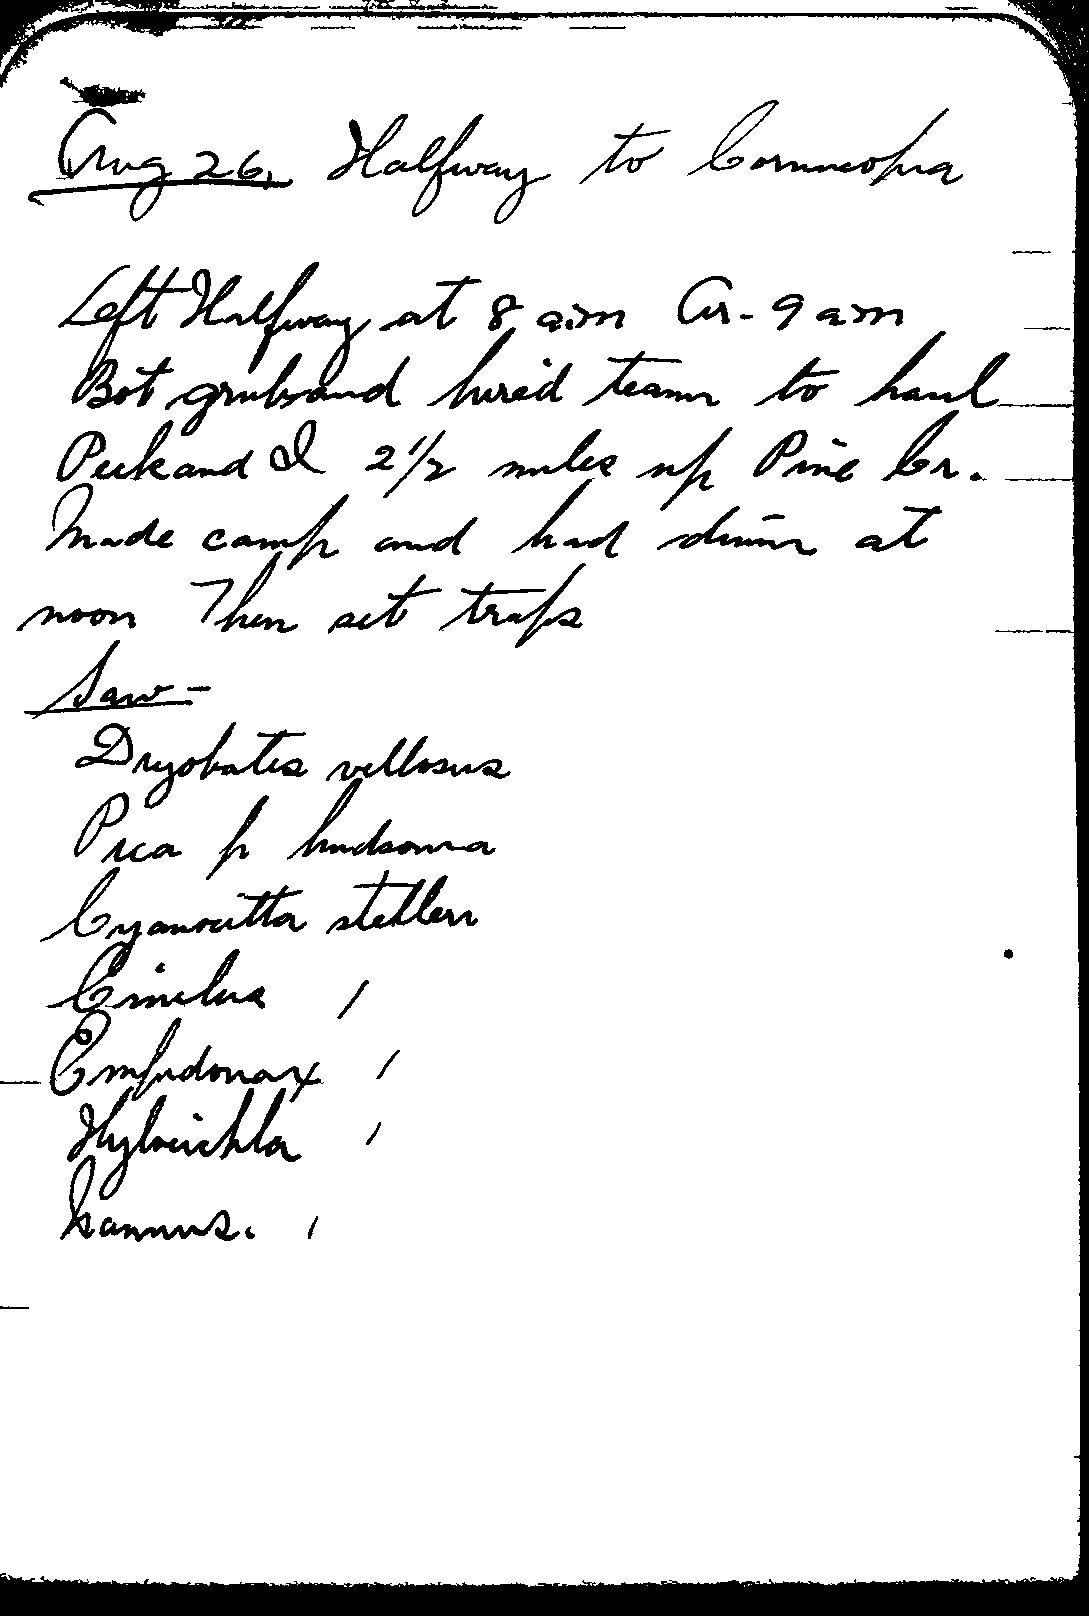 Aug 26, Halfway to Cornucopia
Left Halfway at 8 a.m Ar- 9 a m
Bot grub and hired team to haul
Peck and I 2 1/2 miles up Pine Cr.
Made camp and had dinner at
noon Then set traps
Saw -
Dryobates villosus
Pica p hudsonia
Cyanocitta stelleri
Cinclus /
Empidonax /
Hylocichla /
/